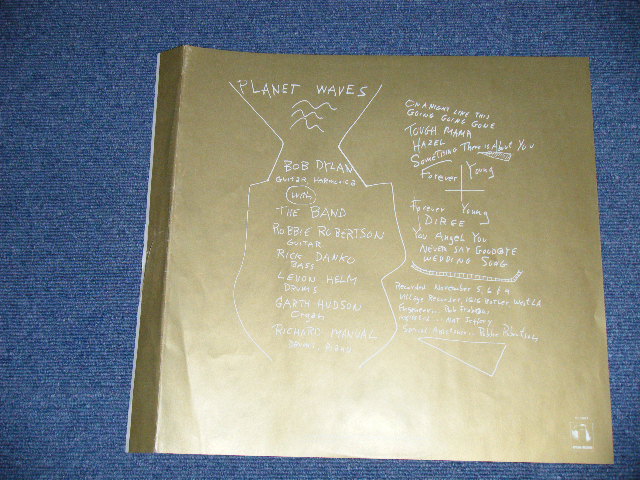 PLANET WAVES
BOB DYLAN
GUITAR, HARMONICA
with
THE BAND
ROBBIE ROBERTSON
GUITAR
RICK DANKO
BASS
LEVON HELM
DRUMS
GARTH HUDSON
Organ
RICHARD MANUAL
DRUMS, Piano
ON A NIGHT LIKE THIS
GOING GOING GONE
TOUGH MAMA
HAZEL
SOMETHING There is About You
Forever Young
Forever Young
DIRGE
You Angel You
NEVER SAY GOODBYE
WEDDING SONG
Recorded November 5, 6 & 9
Village Recorder, 1616 Butler West LA
Engineer... Rob Fraboni
Nat Jeffrey
Special Assistance... Robbie Robertson